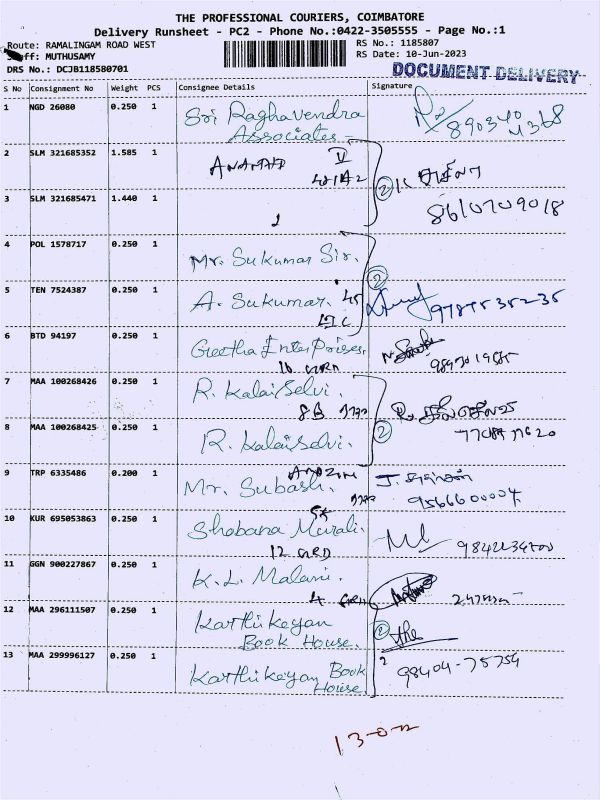 THE PROFESSIONAL COURIERS, COIMBATORE
Delivery Runsheet - PC2 - Phone No.:0422-3505555 - Page No.:1
Route: RAMALINGAM ROAD WEST
RS No.: 1185807
Staff: MUTHUSAMY
RS Date: 10-Jun-2023
DRS No.: DCJB118580701
DOCUMENT DELIVERY
S No Consignment No Weight PCS Consignee Details Signature
1 NGD 26080 0.250 1 Sri Raghavendra
Associates
2 SLM 321685352 1.585 1 ANAND V
3 SLM 321685471 1.440 1
8610709018
4 POL 1578717 0.250 1 Mr. Sukumar Sir.
2
5 TEN 7524387 0.250 1 A. Sukumar. 45
LIC
6 BTD 94197 0.250 1 Geetha Enterprises.
16 GRD
7 MAA 100268426 0.250 1 R. Kalaiselvi.
8 MAA 100268425 0.250 1 R. Kalaiselvi.
2
9 TRP 6335486 0.200 1 Mr. Subash.
9566600004
10 KUR 695053863 0.250 1 Shobana Murali.
12 GRD
11 GGN 900227867 0.250 1 K.L. Malani.
4 GRD
12 MAA 296111507 0.250 1 Karthikeyan
Book House.
2
13 MAA 299996127 0.250 1 Karthikeyan Book
House
98404-75754
13-0-